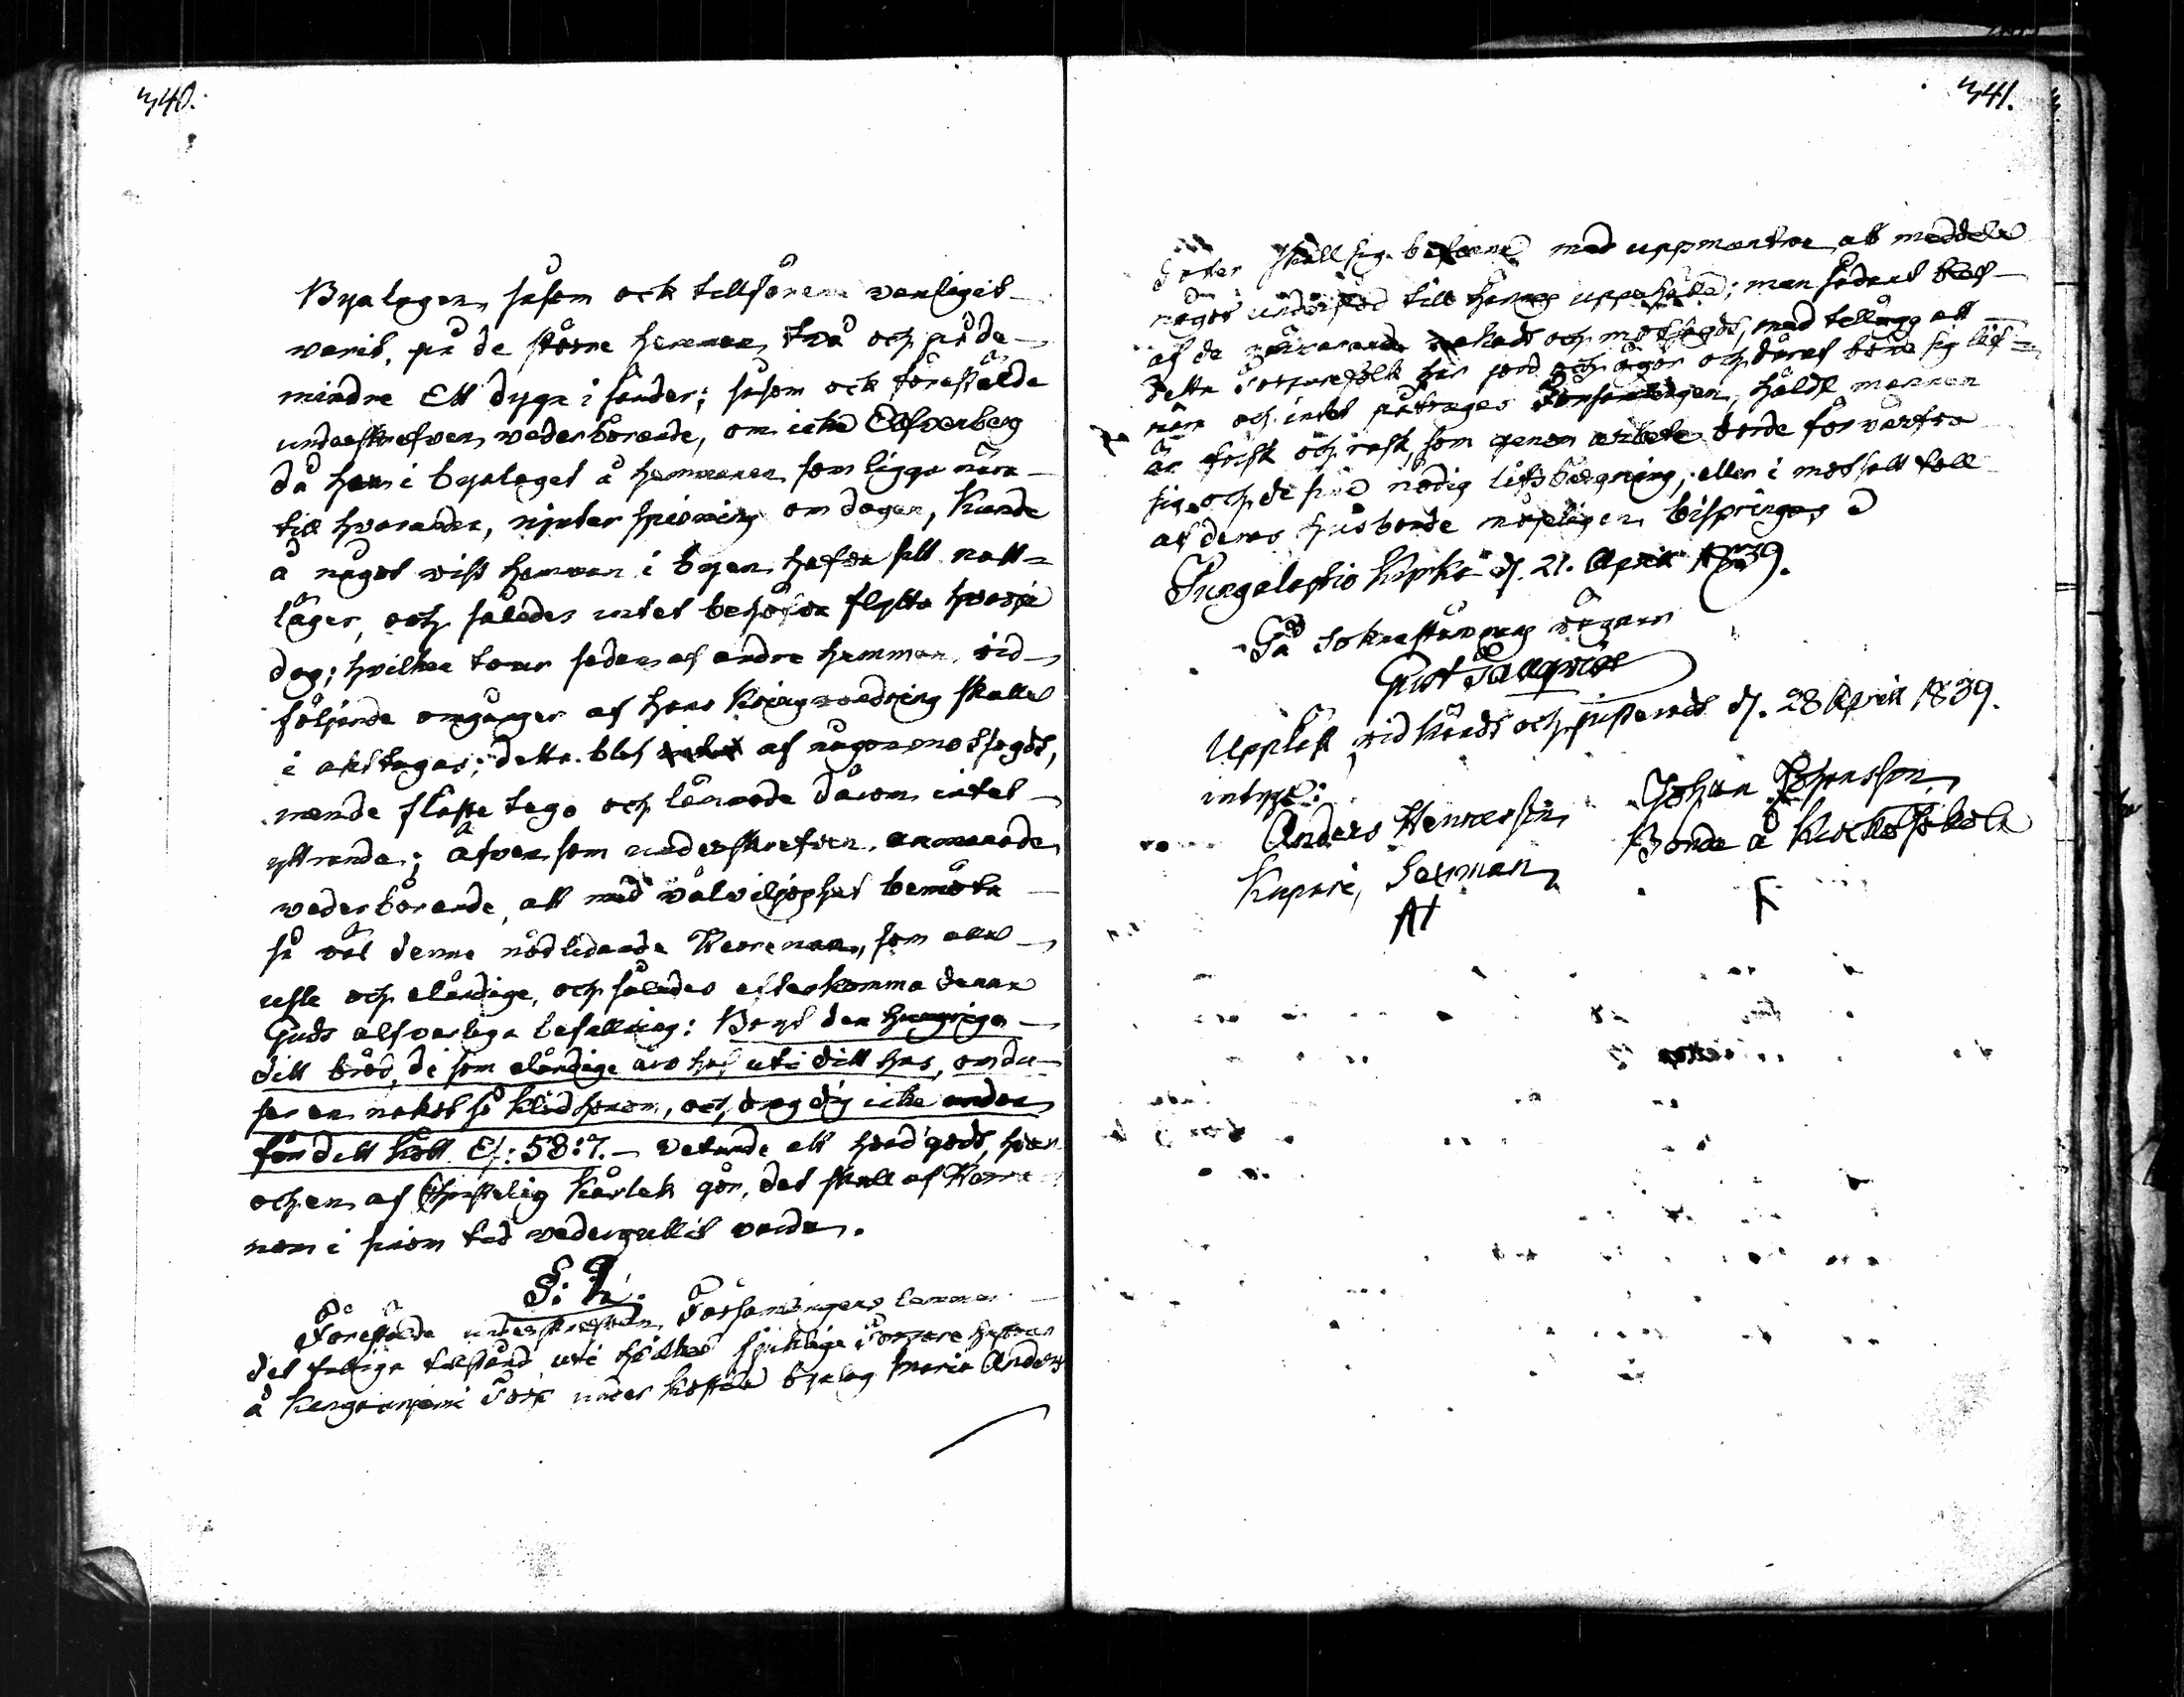 340.
Byalagen, såsom ock tillförene vanligit
varit, på de större hemman två och på de
mindre Ett dygn i sender; såsom ock förestälde
underskrefven vederbörande, om icke Elfverberg
då han i byalaget å hemmanen som ligga nära
till hvarandra, njuter spisning om dagen, kunde
å något visst hemman i byen hafva sitt natt-
läger, och således intet behöfva flytta hvarje
dag; hvilken tour sedan af andre hemman vid
följande omgångar af hans kringvandring skulle
i akt tagas; detta blef af någon motsagdt,
mende flæste tego och lämnade därom intet
yttrande; äfven som underskrefven anmanade
vederbörande, att med välviljoghet bemöta
så väl denne nödlidande Karreman, som
usle och eländige, och således efterkomma denna
Guds alfvarliga befallning: Bryt den hungriga
ditt bröd, de som eländige äro haf uti ditt hus, om du
ser en nakot så kläd honom, och drag dig icke undan
för ditt kött. Es: 58:7. – Vetande att hvad godt, hvar
och en af Christelig kärlek gör, det skall af
nom i sinom tid vedergullit varda.
§: 2.
Förestälde underskrefven Församlingens lemmar
det fattiga tillstånd, uti hvilket sjuklige Torpare hustrun
å Kengänniemi Torp under byalag Maria Anders
341.
dotter skall sig befinna med uppmantran att meddela
något understöd till hennes uppehälle; men sådant blef
af de närvarande nekadt och motsagdt, med tillägg att
detta Torparefolk har jord och ägor och däraf böra sig lif-
nära och intet påtruga Församlingen, håldst mannen
är frisk och rask, som genom arbete borde förvärfva
sig och de sine nödig lifsbergning; eller i motsatt fall
af deras husbonde möjligen bispringas
Pungalaitio Kyrka d. 21. April 1839.
På Sokneståmmans vägnar
Gust Tallqvist
Uppläst vid kändt och justerat d. 28 April 1839.
intyga:
Anders Henricsson
Kupari, Sexman,
AH
Johan Johansson,
Bonde å